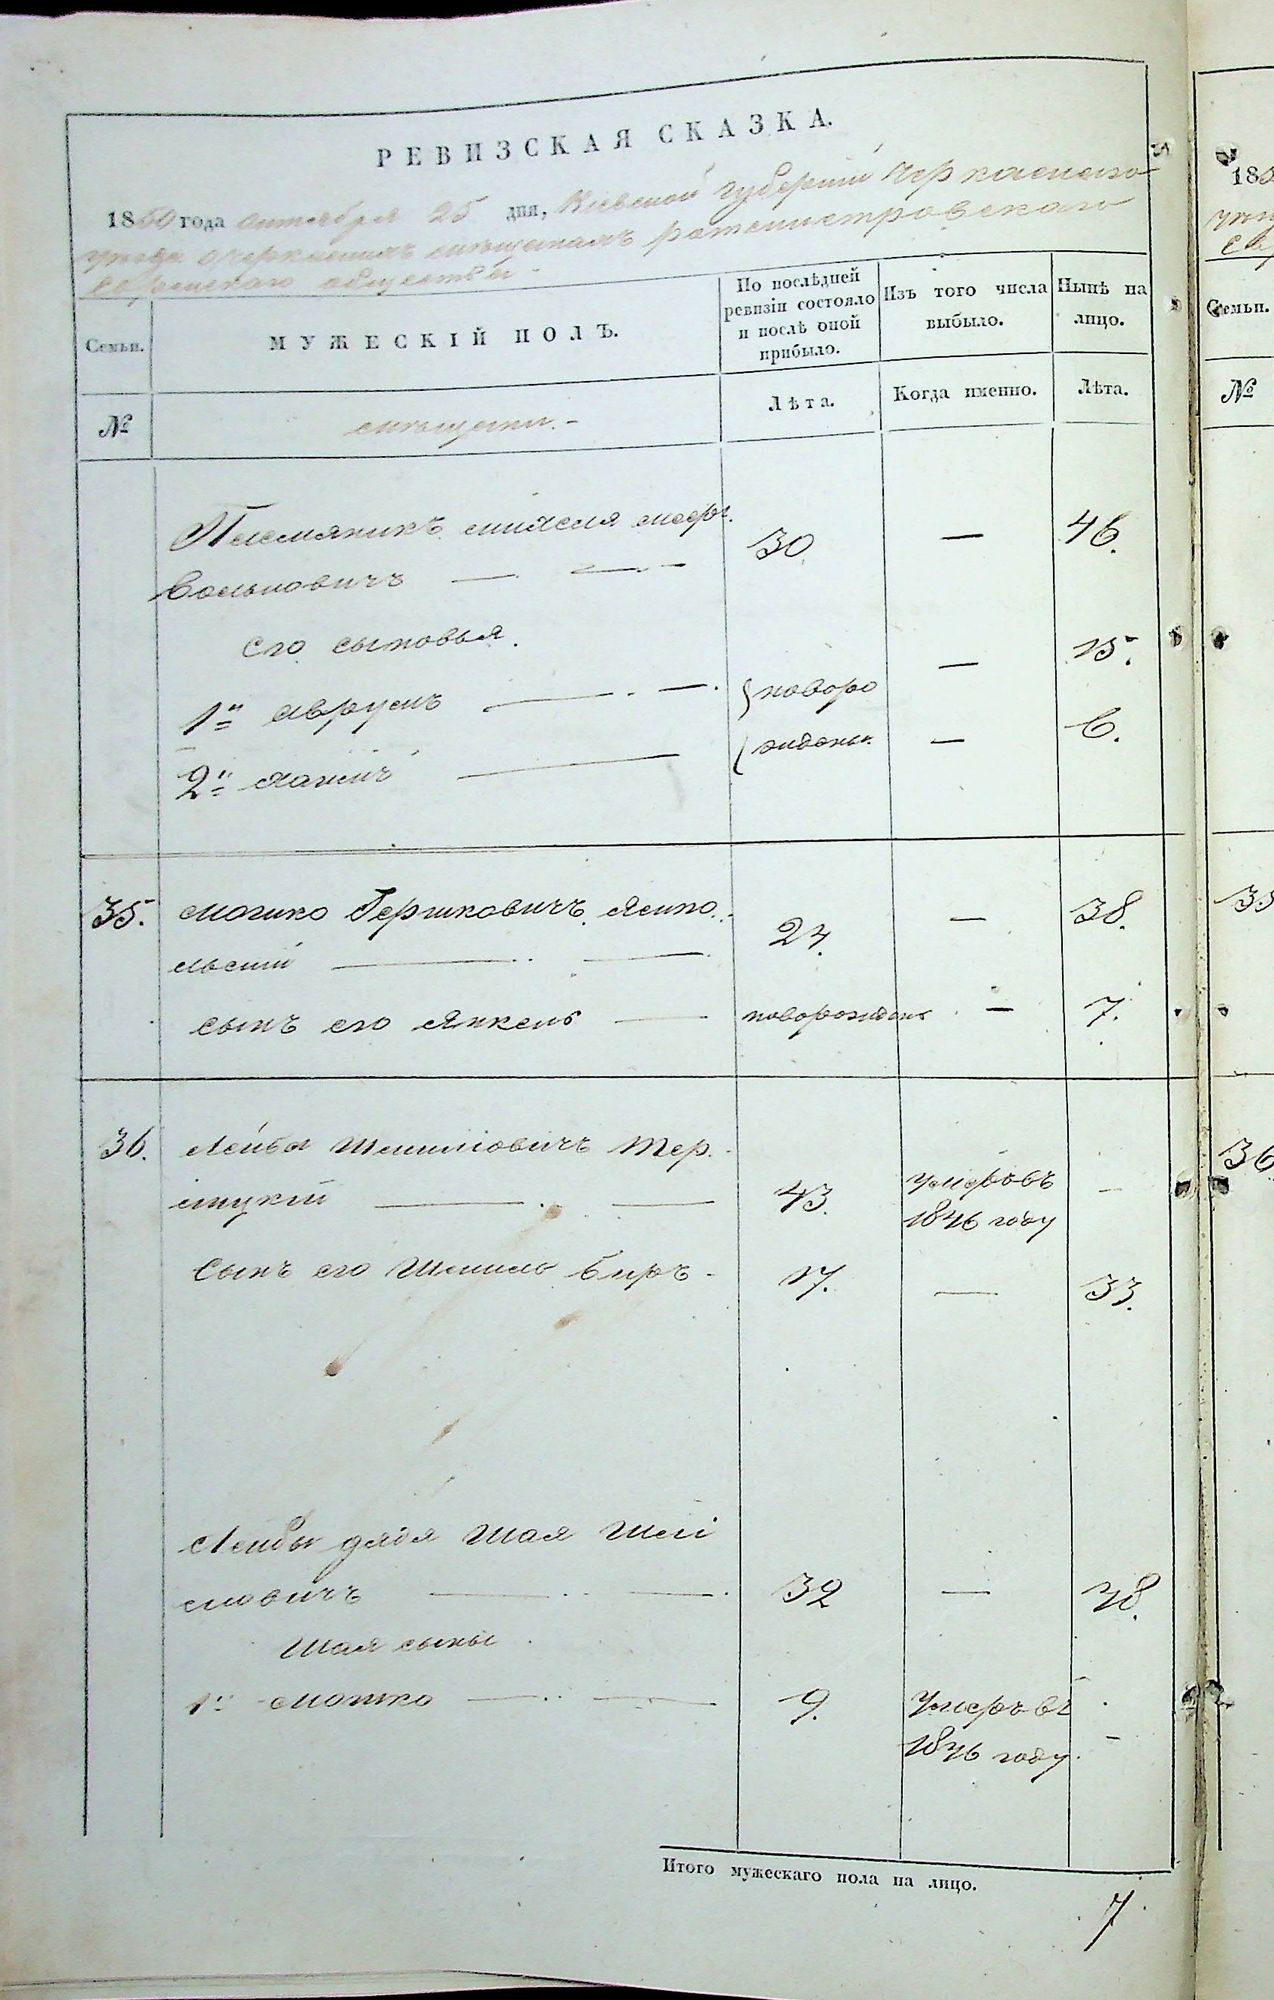 РЕВИЗСКАЯ СКАЗКА.
1850 года октября 25 дня, Кіевской губерніи Черкаскаго
уѣзда о мѣщанахъ ротмистровскаго
еврейскаго общества
Семьи.
МУЖЕСКІЙ ПОЛЪ.
По послѣдней
ревизіи состояло
и послѣ оной
прибыло.
Изъ того числа
выбыло.
Нынѣ на
лицо.
№
мѣщане.
Лѣта.
Когда именно.
Лѣта.
Племяникъ
Вольковичъ 30 — 46.
Его сыновья.
1й Аврумъ новоро — 15.
2й жденн. — 6.
35. Мошко Гершковичъ Яспо
льскій 24. — 38.
сынъ его Янкель новорожден — 7.
36. Лейба Шмиліовичъ Тер
лицкій 43. умеръ въ
1846 году
Сынъ его Шмиль Беръ 17. — 33.
Лейбы дядя Шая Шмі
ліовичъ 32 — 48.
Шая сыны
1й Мошко 9. Умеръ въ
1846 году.
Итого мужескаго пола на лицо.
7